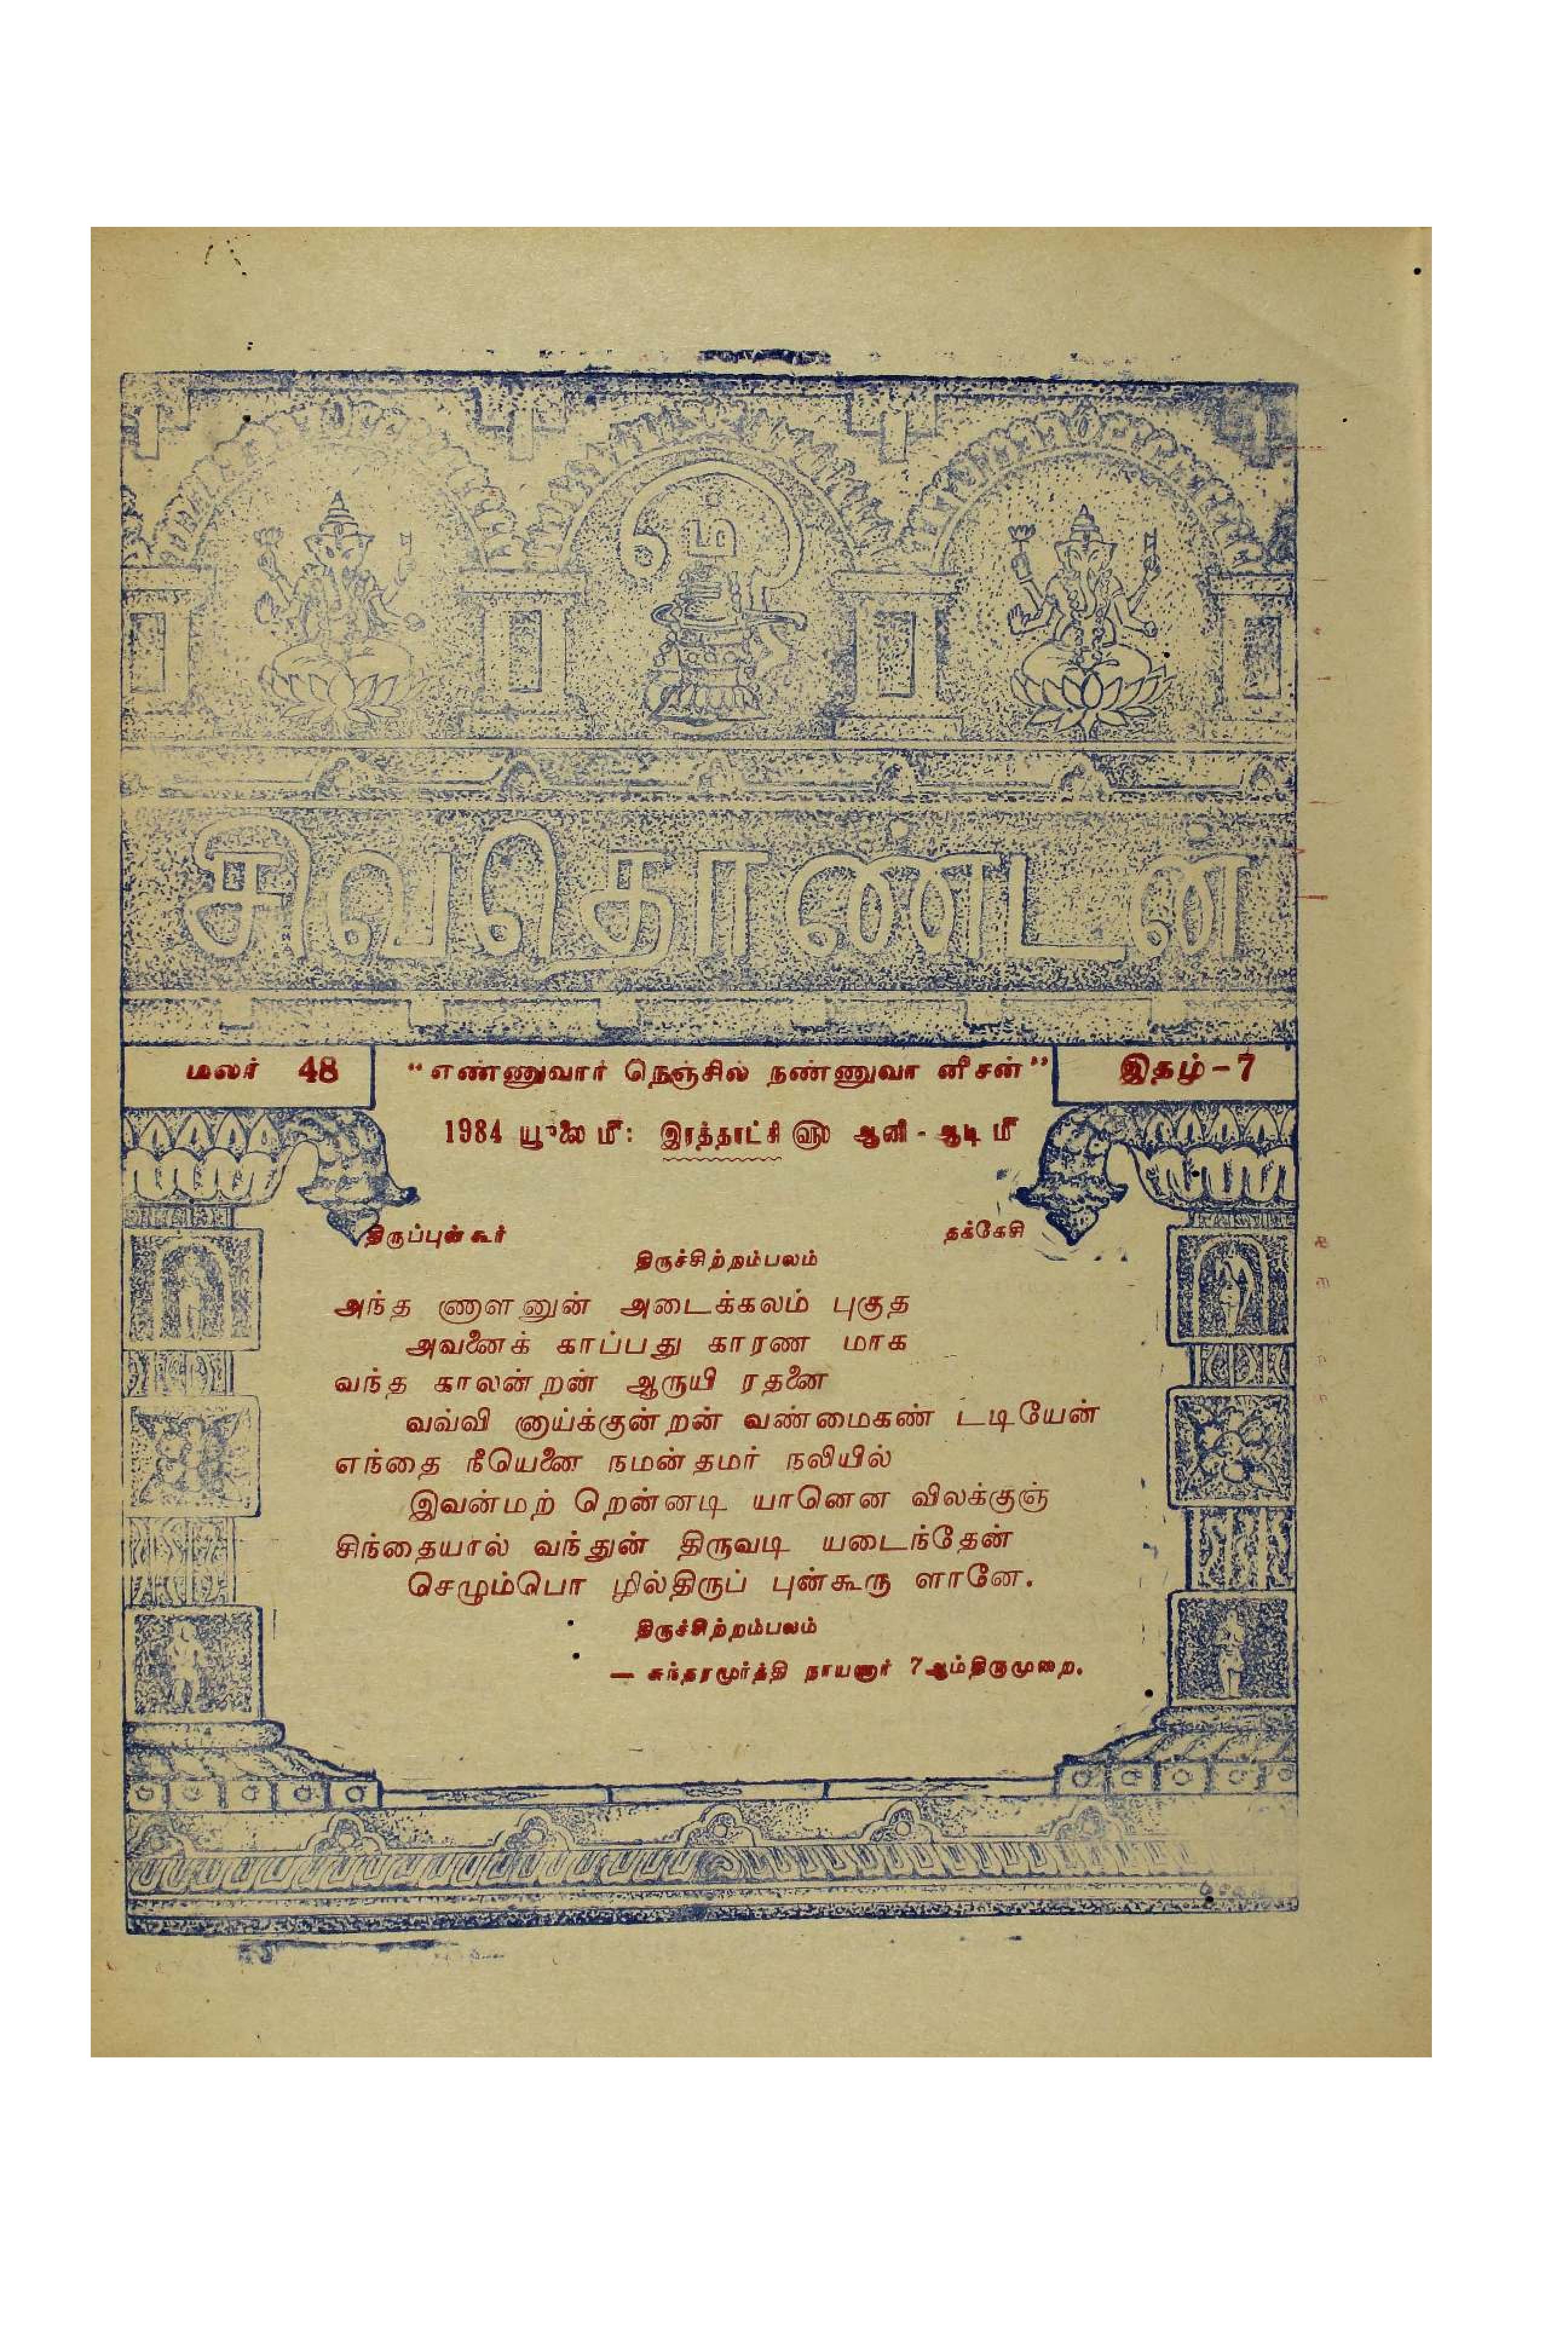 ஓம்
சிவதொண்டன்
மலர் 48 “எண்ணுவார் நெஞ்சில் நண்ணுவா னீசன்” இதழ் - 7
1984 யூலை மீ: இரத்தாட்சி ௵ ஆனி - ஆடி மீ
திருப்புன்கூர் தக்கேசி
திருச்சிற்றம்பலம்
அந்த ணாளனுன் அடைக்கலம் புகுத
அவனைக் காப்பது காரண மாக
வந்த காலன்றன் ஆருயி ரதனை
வவ்வி னாய்க்குன்றன் வண்மைகண் டடியேன்
எந்தை நீயெனை நமன்தமர் நலியில்
இவன்மற் றென்னடி யானென விலக்குஞ்
சிந்தையால் வந்துன் திருவடி யடைந்தேன்
செழும்பொ ழில்திருப் புன்கூரு ளானே.
திருச்சிற்றம்பலம்
— சுந்தரமூர்த்தி நாயனார் 7ஆம்திருமுறை.